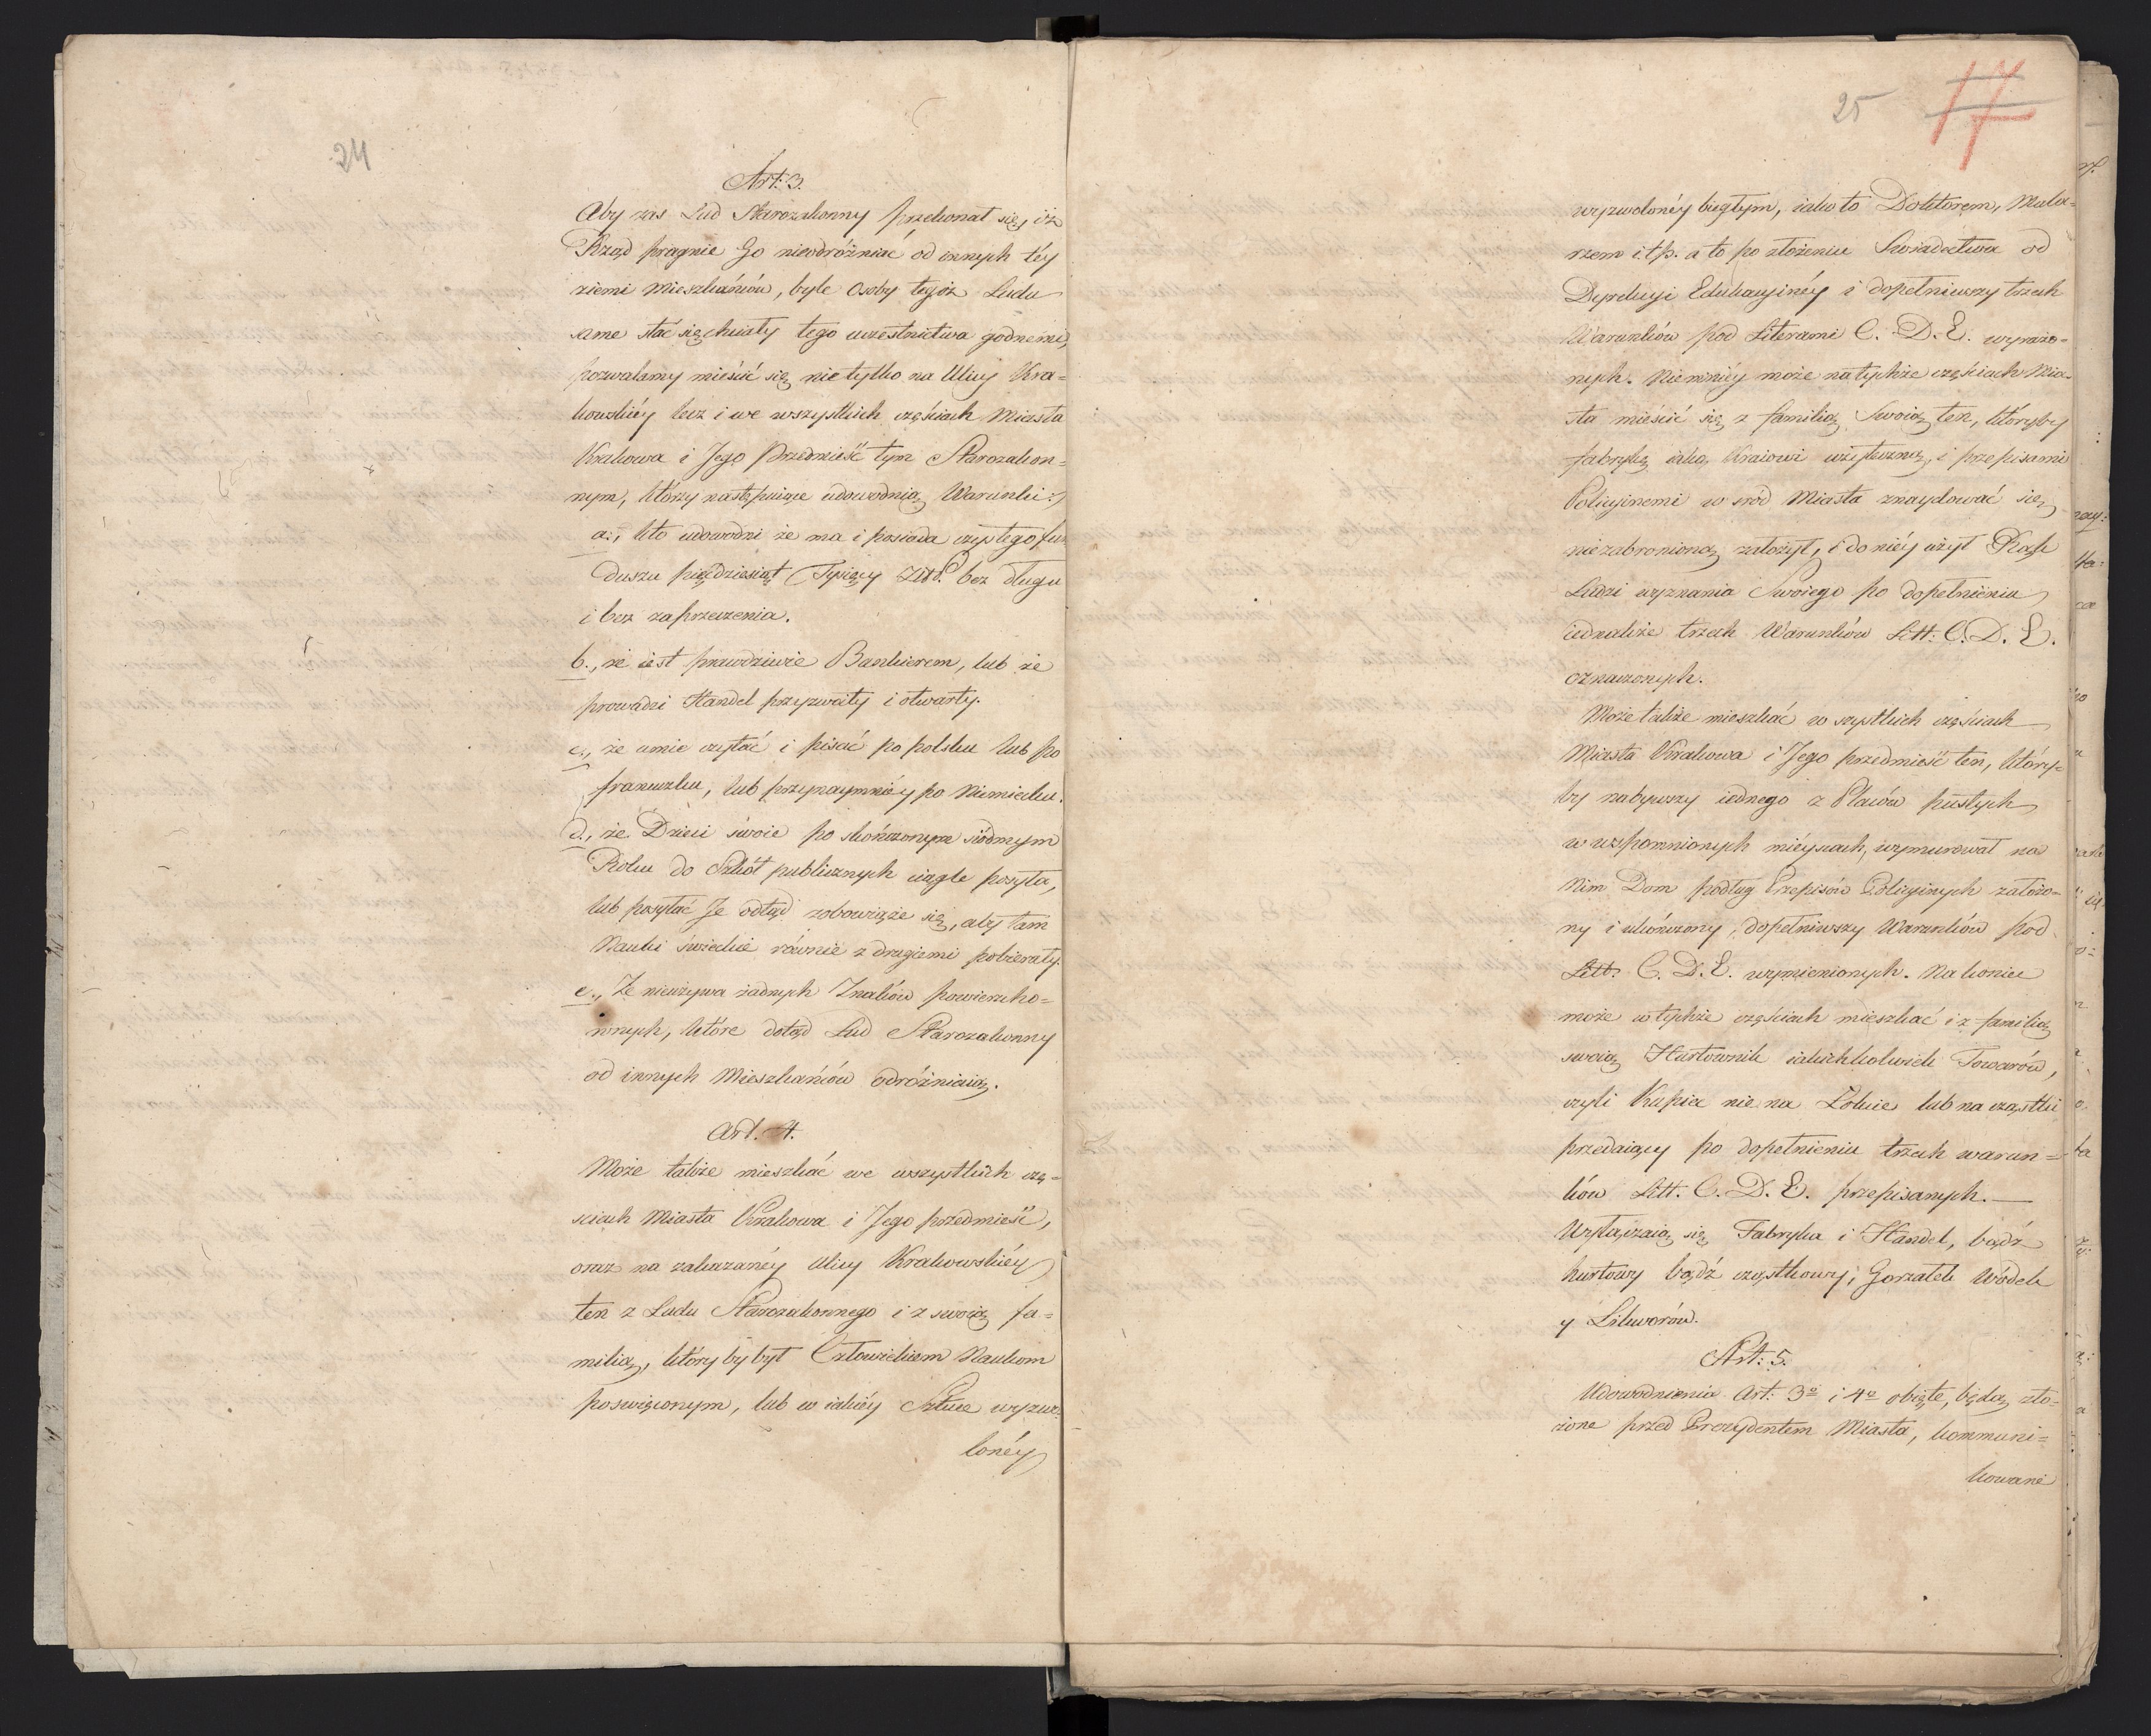 24
Art: 3.
Aby zas Lud Starozakonny przekonał się, iż
Rząd pragnie Go nieodróżniać od innych téy
ziemi Mieszkańców, byle Osoby tegoż Ludu
same stać się chciały tego uczestnictwa godnemi,
pozwalamy mieścić się nie tylko na Ulicy Kra=
kowskiéy lecz i we wszystkich częściach Miasta
Krakowa i Jego Przedmieść tym Starozakon=
nym, którzy następuiące udowodnią Warunki:
a., kto udowodni że ma i posiada czystego fun
duszu pięćdziesiąt Tysięcy Złł P. bez długu
i bez zaprzeczenia.
b., że iest prawdziwie Bankierem, lub że
prowadzi Handel przyzwoity i otwarty.
c., że umie czytać i pisać po polsku lub po
francuzku, lub przynaymniéy po Niemiecku.
d., że Dzieci swoie po skończonym siódmym
Roku do Szkół publicznych ciągle posyła,
lub posyłać Je odtąd zobowiąże się, aby tam
Nauki świeckie równie z drugiemi pobierały.
e., Że nieużywa żadnych Znaków powierzcho=
wnych, które dotąd Lud Starozakonny
od innych Mieszkańców odróżniaią.
Art. 4.
Może także mieszkać we wszystkich czę=
sciach Miasta Krakowa i Jego przedmieść,
oraz na zakazanéy Ulicy Krakowskiéy
ten z Ludu Starozakonnego i z swoią fa=
milią, który by był Człowiekiem Naukom
poswięconym, lub w iakiéy Sztuce wyzwo=
lonéy
25 17
wyzwolonéy biegłym, iako to Doktorem, Mala=
rzem i.t.p. a to po złożeniu Swiadectwa od
Dyrekcyi Edukacyinéy i dopełniwszy trzech
Warunków pod Literami C. D. E. wyrażo=
nych. Niemniéy może na tychże częściach Mia=
sta mieścić się z familią Swoią ten, któryby
fabrykę iaką Kraiowi użyteczną, i przepisami
Policyinemi w sród Miasta znaydować się
niezabronioną założył, i do niéy użył Rąk
Ludzi wyznania Swoiego po dopełnieniu
iednakże trzech Warunków Litt: C. D. E.
oznaczonych.
Może także mieszkać w szystkich częściach
Miasta Krakowa i Jego przedmieść ten, który=
by nabywszy iednego z Placów pustych
w wzpomnionych mieyscach, wymurował na
Nim Dom podług Przepisów Policyinych założo=
ny i ukończony, dopełniwszy Warunków pod
Litt. C. D. E. wymienionych. Na koniec
może w tychże częściach mieszkać i z familią
swoią Hurtownik iakichkolwiek Towarów,
czyli Kupiec nie na Łokcie lub na cząstki
przedaiący po dopełnieniu trzech warun=
ków Litt. C. D. E. przepisanych.—
Wyłączaią się Fabryka i Handel, bądź
hurtowy bądź cząstkowy, Gorzałek Wódek
y Likworów.
Art: 5.
Udowodnienia Art: 3º i 4º obięte, będą zło=
żone przed Prezydentem Miasta, kommuni=
kowane